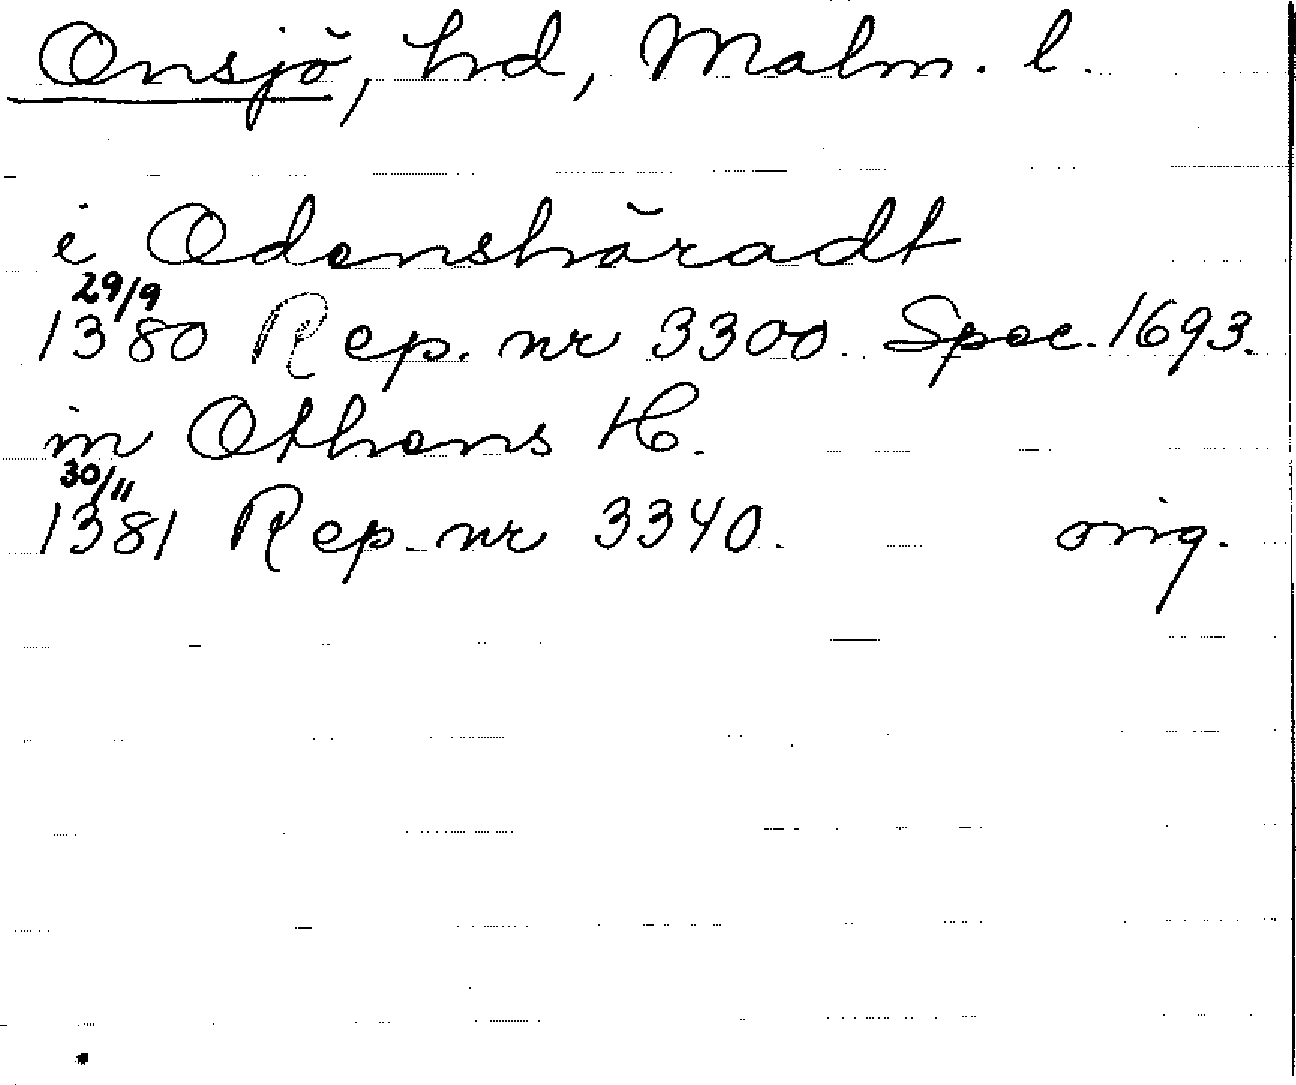 Onsjö, hd, Malm. l.
i Odenshäradt
29/9
1380 Rep. nr 3300. Spec. 1693.
in Othens H.
30/11
1381 Rep. nr 3340. orig.